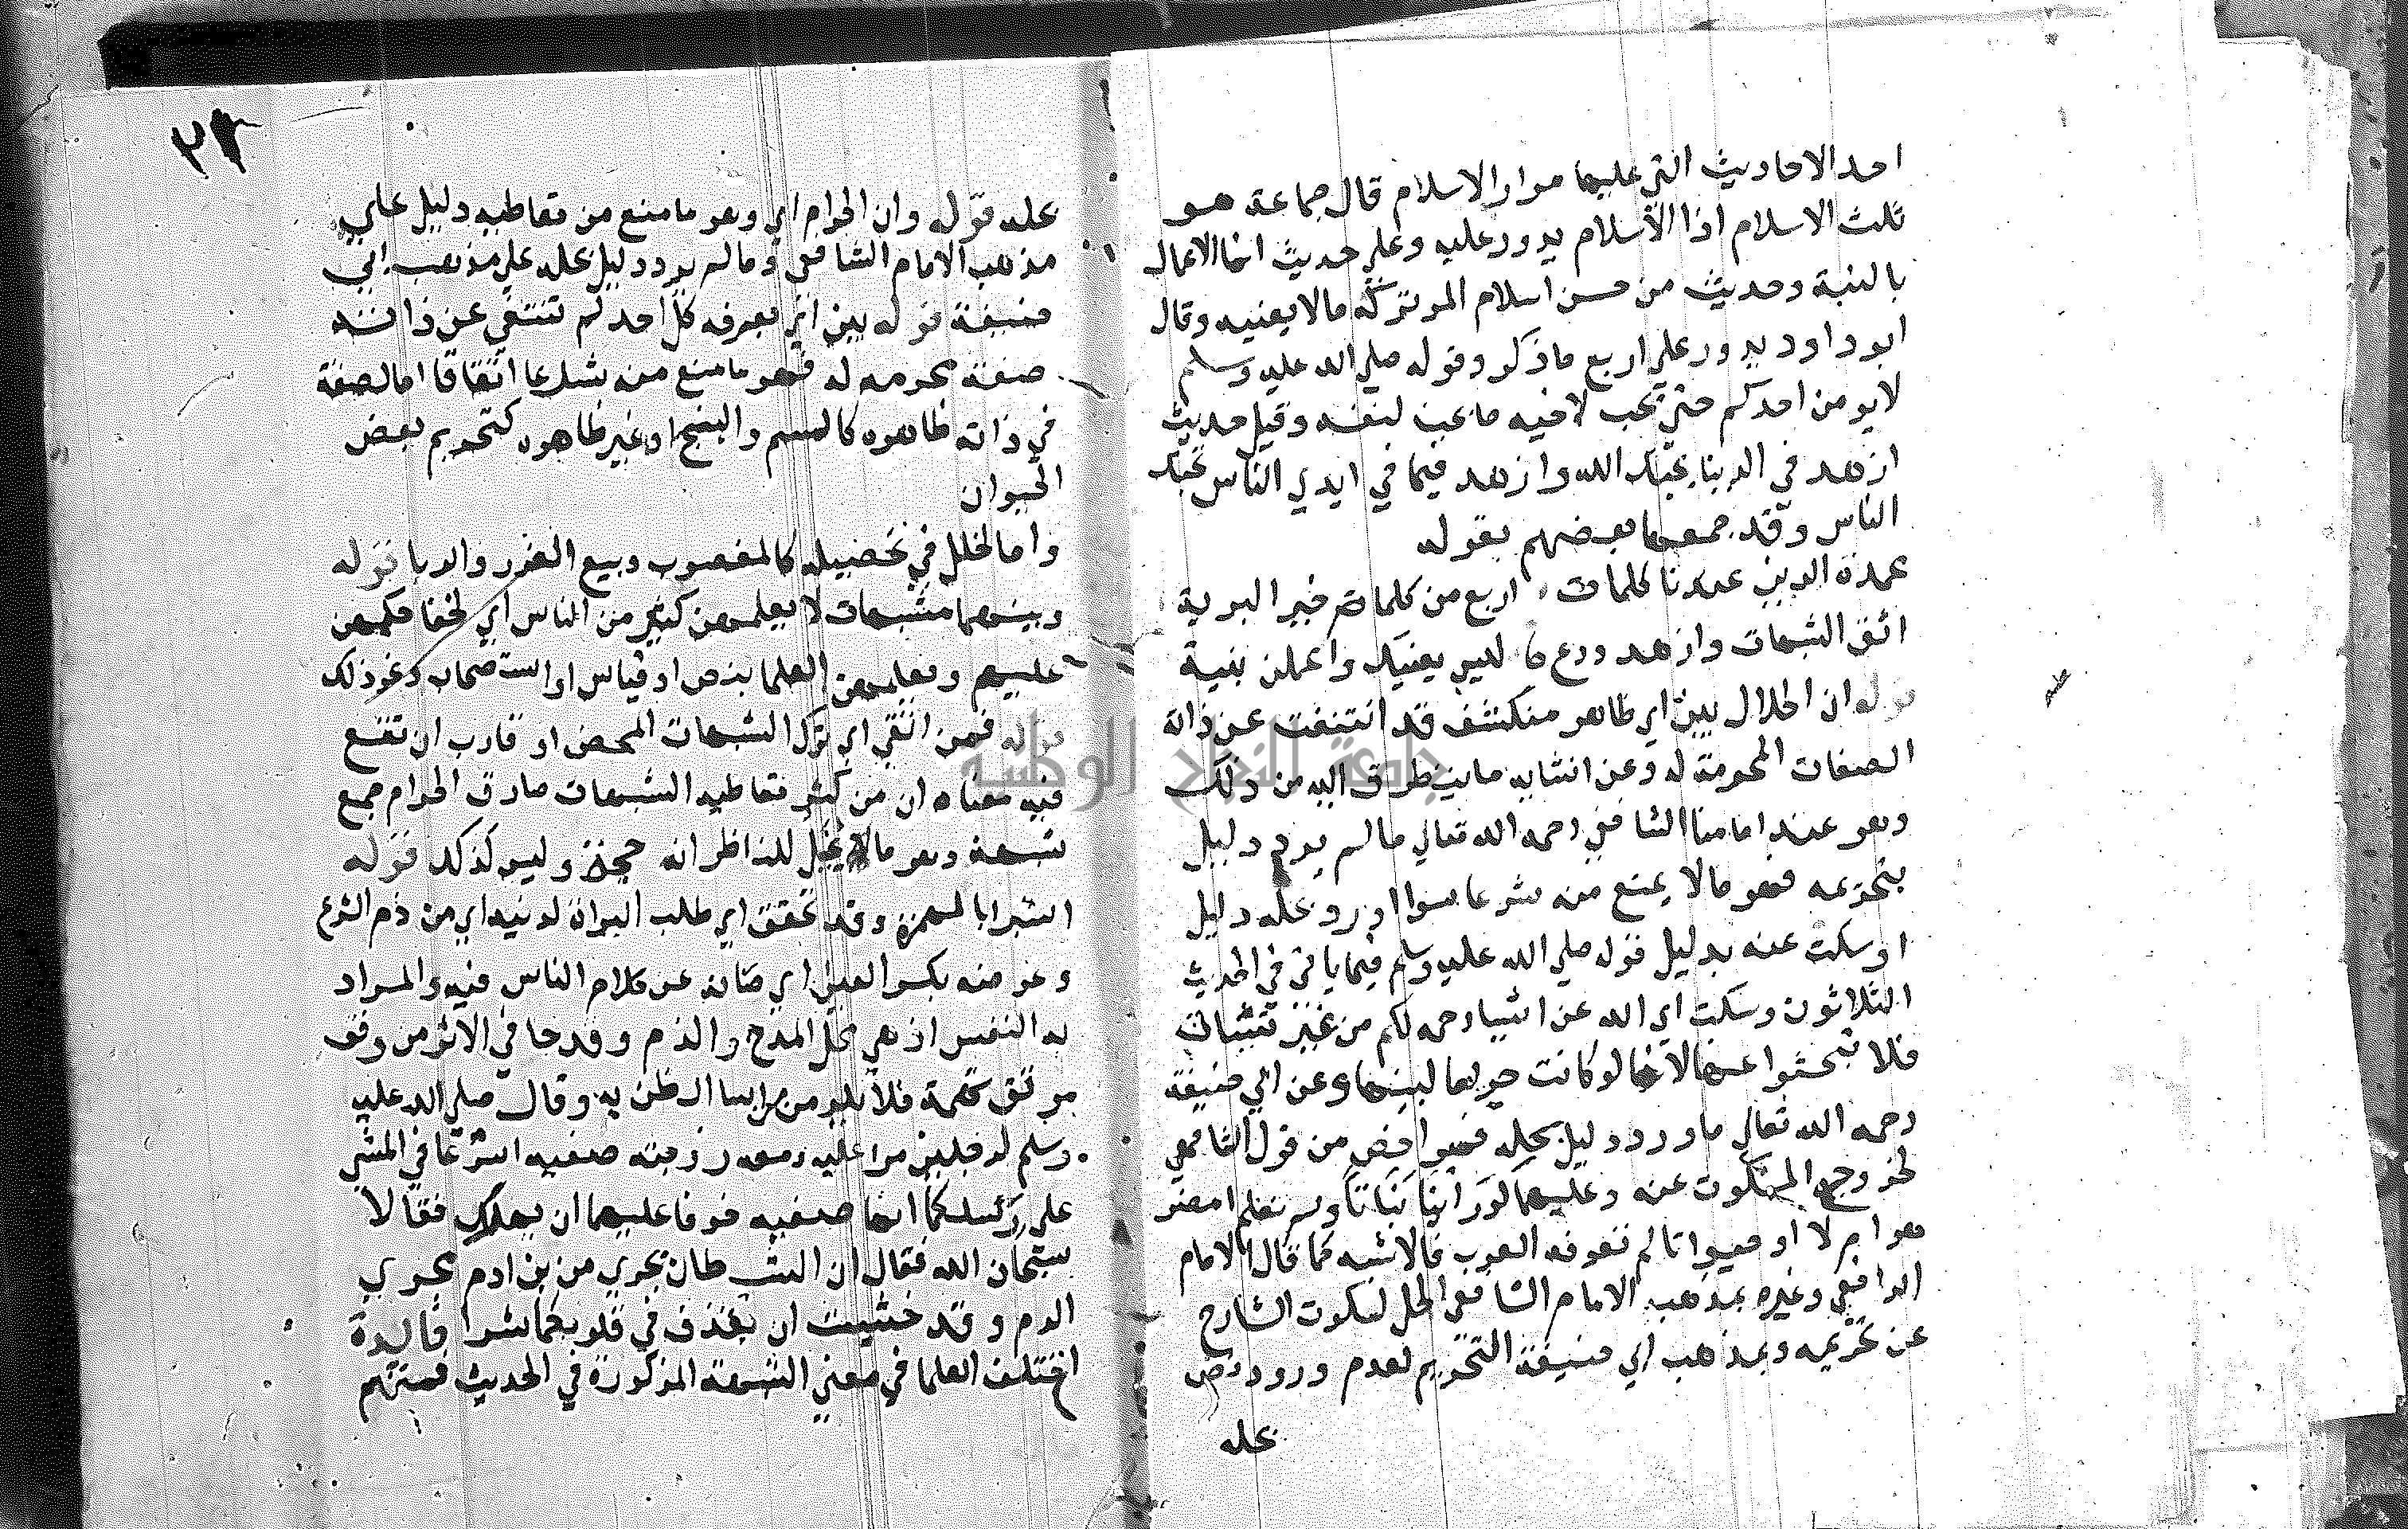 احد الاحاديث التي عليها مدار الاسلام قال جماعة هو
ثلث الاسلام اذ الاسلام يدور عليه وعلي حديث انما الاعمال
بالنية وحديث من حسن اسلام المرء تركه مالا يعنيه وقال
ابو داود يدور علي اربع ما ذكر وقوله صلي الله عليه وسلم
لا يومن احدكم حتي يحب لاخيه ما يحب لنفسه وقيل حديث
ازهد في الدنيا يحبك الله وازهد فيما في ايدي الناس يحبك
الناس وقد جمعها بعضهم بقوله
عمدة الدين عندنا كلمات اربع من كلمات خير البرية
اتق الشبهات وازهد ودع ما ليس يعنيك واعملن بنية
قوله ان الحلال بين اي ظاهر منكشف قد انتفت عن ذاته
الصفات المحرمة له وعن اشابه ما يتطرق اليه من ذلك
وهو عند امامنا الشافعي رحمه الله تعالي ما لم يرد دليل
بتحريمه فهو مالا يمنع منه شرعا سوا ورد بحله دليل
او سكت عنه بدليل قوله صلي الله عليه وسلم فيما ياتي في الحديث
الثلاثون وسكت اي الله عن اشيا رحمة لكم من غير نسيان
فلا تبحثوا عنها لانها لو كانت حرمها لبينها وعن ابي حنيفة
رحمه الله تعالي ما ورد دليل بحله فهو اخص من قول الشافعي
لخروج المسكوت عنه وعليهما لو راينا نباتا ولم نعلم امضر
هو ام لا او حيوانا لم تعرفه العرب فالاشبه كما قال الامام
الرافعي وغيره بمذهب الامام الشافعي الحل لسكوت الشارع
عن تحريمه وبمذهب ابي حنيفة التحريم لعدم ورود نص
بحله
٣٢
بحله قوله وان الحرام اي وهو ما منع من تعاطيه دليل علي
مذهب الامام الشافعي وما لم يرد دليل بحله علي مذهب ابي
حنيفة قوله بين اي يعرفه كل احد لم تنتفي عن ذاته
صفة محرمه له فهو ما منع منه شرعا اتفاقا اما لصفة
في ذاته ظاهره كالسم والبنج او غير ظاهره كتحريم بعض
الحيوان
واما لخلل في تحصيله كالمغصوب وبيع الغرر والربا قوله
وبينهما مشبهات لا يعلمهن كثير من الناس اي لخفا حكمهن
عليهم ويعلمهن العلما بنص او قياس او استصحاب ونحو ذلك
قوله فمن اتقي اي ترك الشبهات المحض او قارب ان تقع
فيه معناه ان من كثر تعاطيه الشبهات صادق الحرام جمع
شبهة وهو ما يخيل للناظر انه حجة وليس كذلك قوله
استبرا بالهمزة وقد تحقق اي طلب البراة لدينه اي من ذم الشرع
وعرضه بكسر العين اي صانه عن كلام الناس فيه والمراد
به النفس اذ هي محل المدح والذم وقد جا في الاثر من وقف
موقف تهمة فلا يلومن من اسا الظن به وقال صلي الله عليه
وسلم لرجلين مرا عليه ومعه زوجته صفيه اسرعا في المشي
علي رسلكما انها صفيه خوفا عليهما ان يهلك فقالا
سبحان الله فقال ان الشيطان يجري من بن ادم مجري
الدم وقد خشيت ان يقذف في قلوبكما شرا فائدة
اختلف العلما في معني الشبهة المذكورة في الحديث فمنهم
جامعة النجاح الوطنية